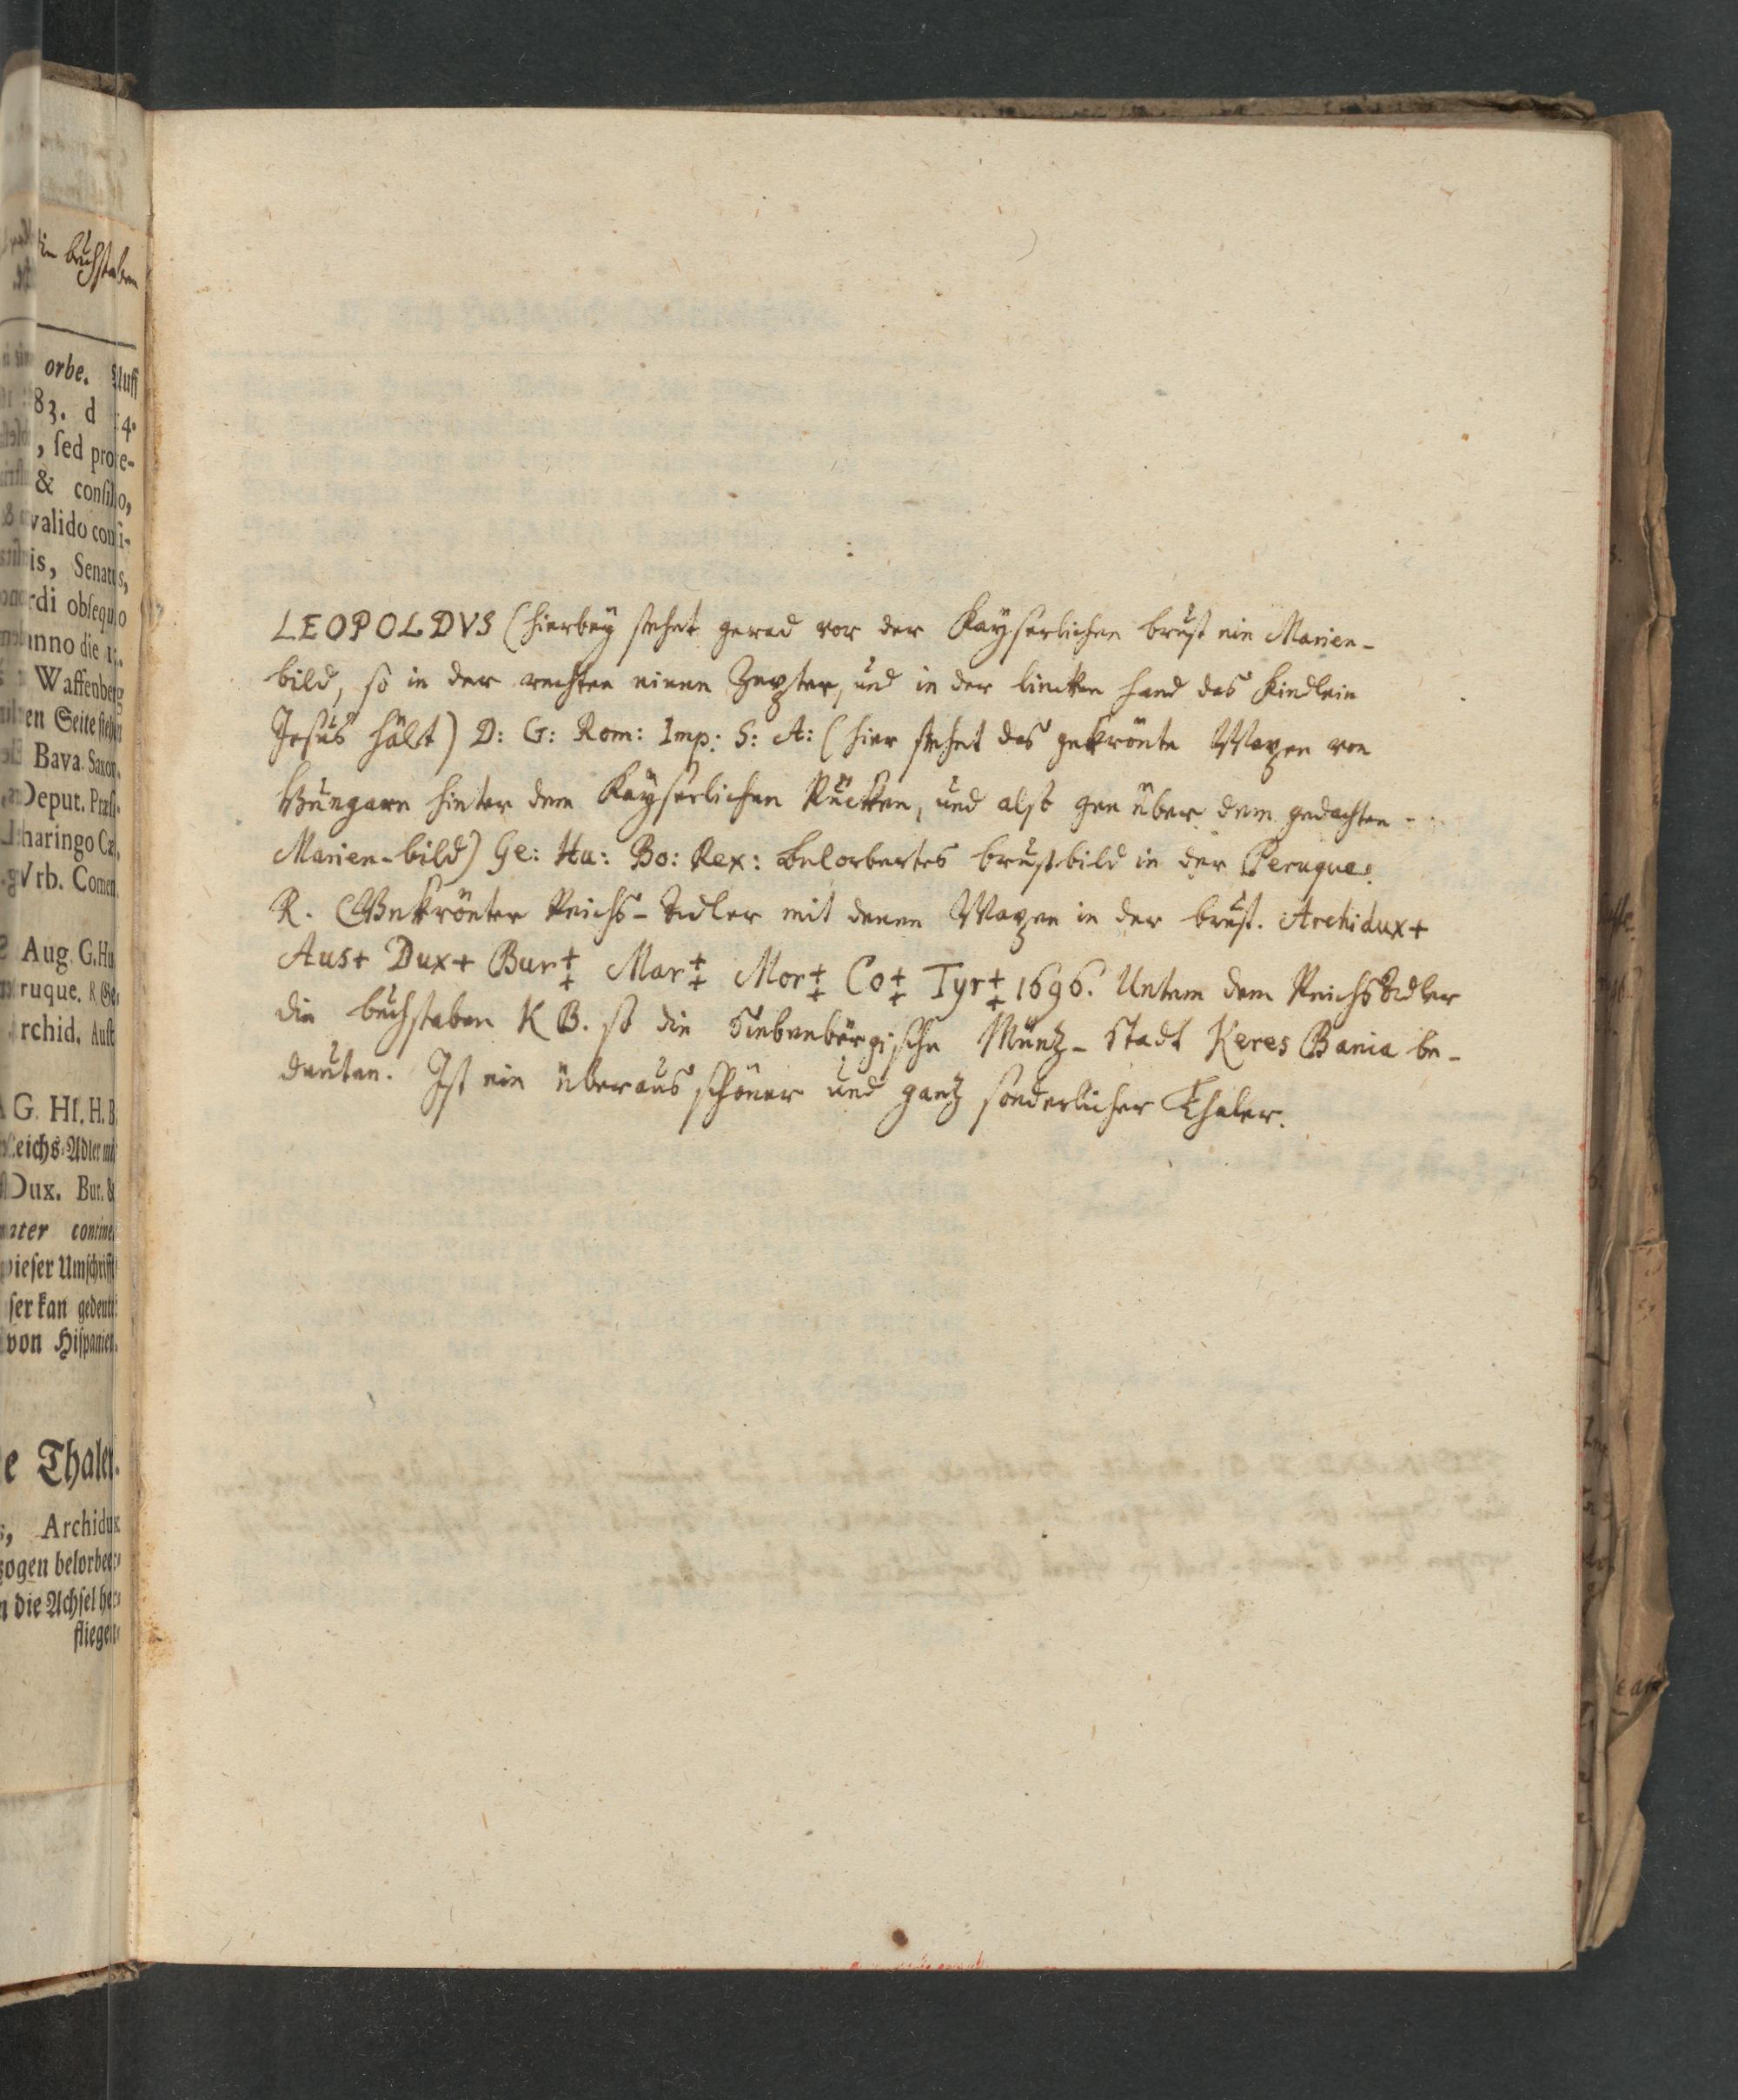 LEOPOLDVS (hierbeÿ stehet gerad vor der Kaÿserlichen brust ein Marien-
bild, so in der rechten einen Zepter, und in der lincken hand das Kindlein
Jesus hält) D: G: Rom: Imp: S: A: (hier stehet das gekrönte Wapen von
Hungarn hinter dem Kaÿserlichen Rücken, und also gen über dem gedachten -
Marien-bild) Ge: Hu: Bo: Rex: belorbertes brustbild in der Peruque.
R. Gekrönter Reichs-Adler mit denen Wapen in der brust. Archidux+
Aus+ Dux+ Bur‡ Mar‡ Mor‡ Co‡ Tyr‡ 1696. Untem dem Reichs Adler
die buchstaben K B. so die Siebenbürgische Müntz-Stadt Keres Bania be-
deuten. Ist ein überaus schöner und gantz sonderlicher Thaler.
buchstaben
orbe. Auff
83. d 14.
, sed prote-
& consilio,
valido consi-
is, Senatus,
rdi obsequio
anno die
Waffenberg
en Seite
Bava. Saxon.
Deput.
haringo
Vrb. Comen.
Aug. G. Hu
ruque. R
rchid. Aust
G. H. H. B
Reichs-Adler mit
Dux. Bur. &
ater contine
dieser Umschrifft
ser kan gedeut
von Hispanien.
e Thaler.
s, Archidux
zogen belorbeer-
n die Achsel her-
fliegen-